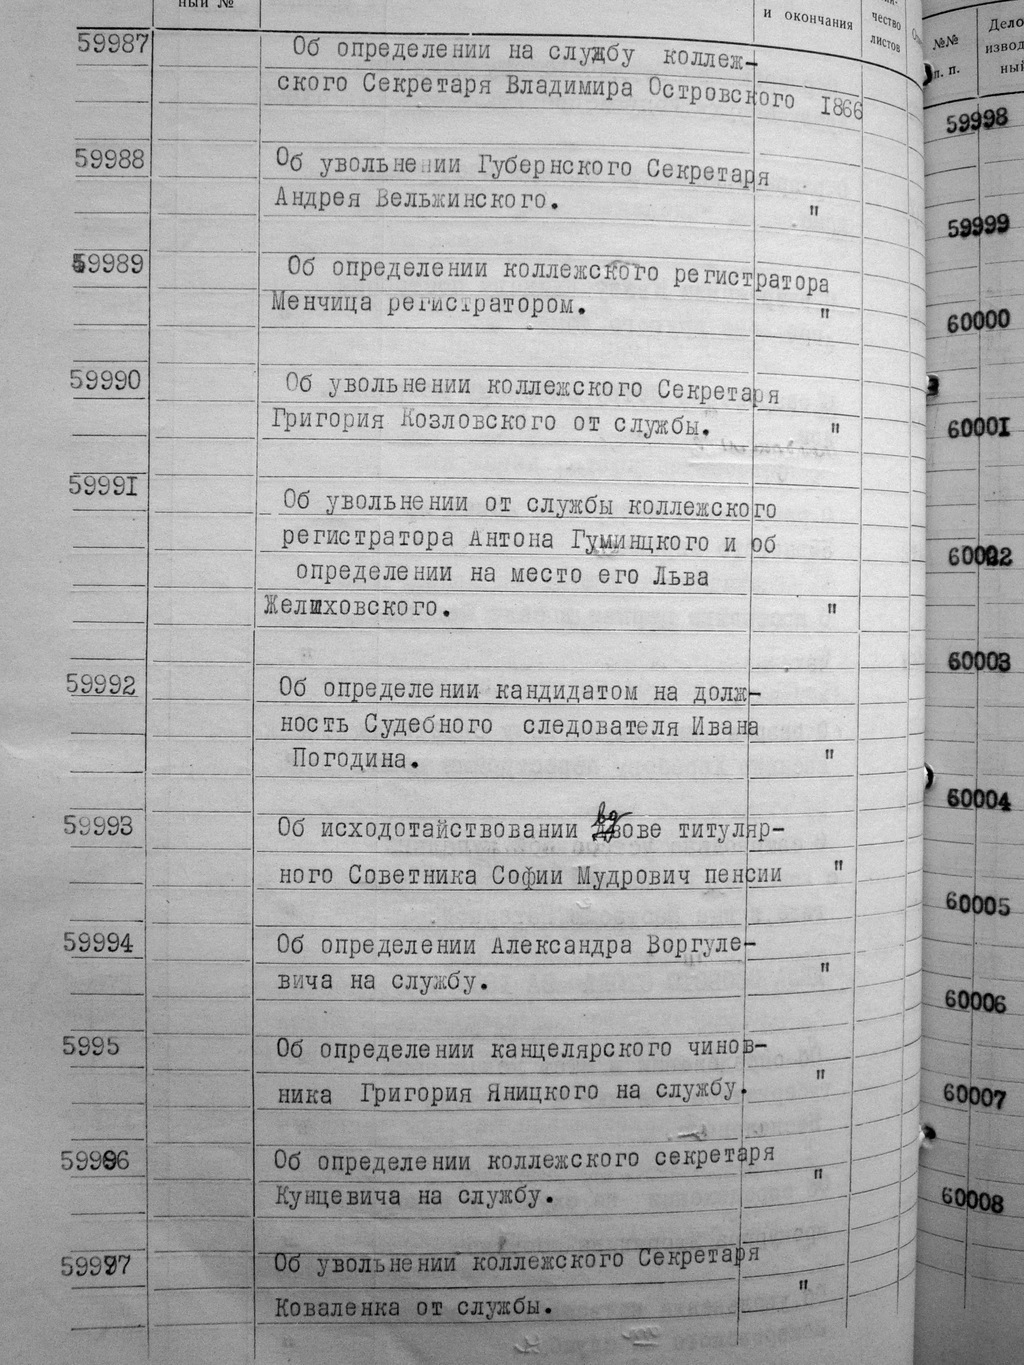 ный №
и окончания
чество
листов
59987 Об определении на службу коллеж-
ского Секретаря Владимира Островского 1866
59988 Об увольнении Губернского Секретаря
Андрея Вельжинского. "
59989 Об определении коллежского регистратора
Менчица регистратором. "
59990 Об увольнении коллежского Секретаря
Григория Козловского от службы. "
59991 Об увольнении от службы коллежского
регистратора Антона Гуминцкого и об
определении на место его Льва
Желиховского. "
59992 Об определении кандидатом на долж-
ность Судебного следователя Ивана
Погодина. "
59993 Об исходотайствовании вдове титуляр-
ного Советника Софии Мудрович пенсии "
59994 Об определении Александра Воргуле-
вича на службу. "
5995 Об определении канцелярского чинов-
ника Григория Яницкого на службу. "
59996 Об определении коллежского секретаря
Кунцевича на службу. "
59997 Об увольнении коллежского Секретаря
Коваленка от службы. "
№№
п. п.
Дело
извод
ный
59998
59999
60000
60001
60002
60003
60004
60005
60006
60007
60008